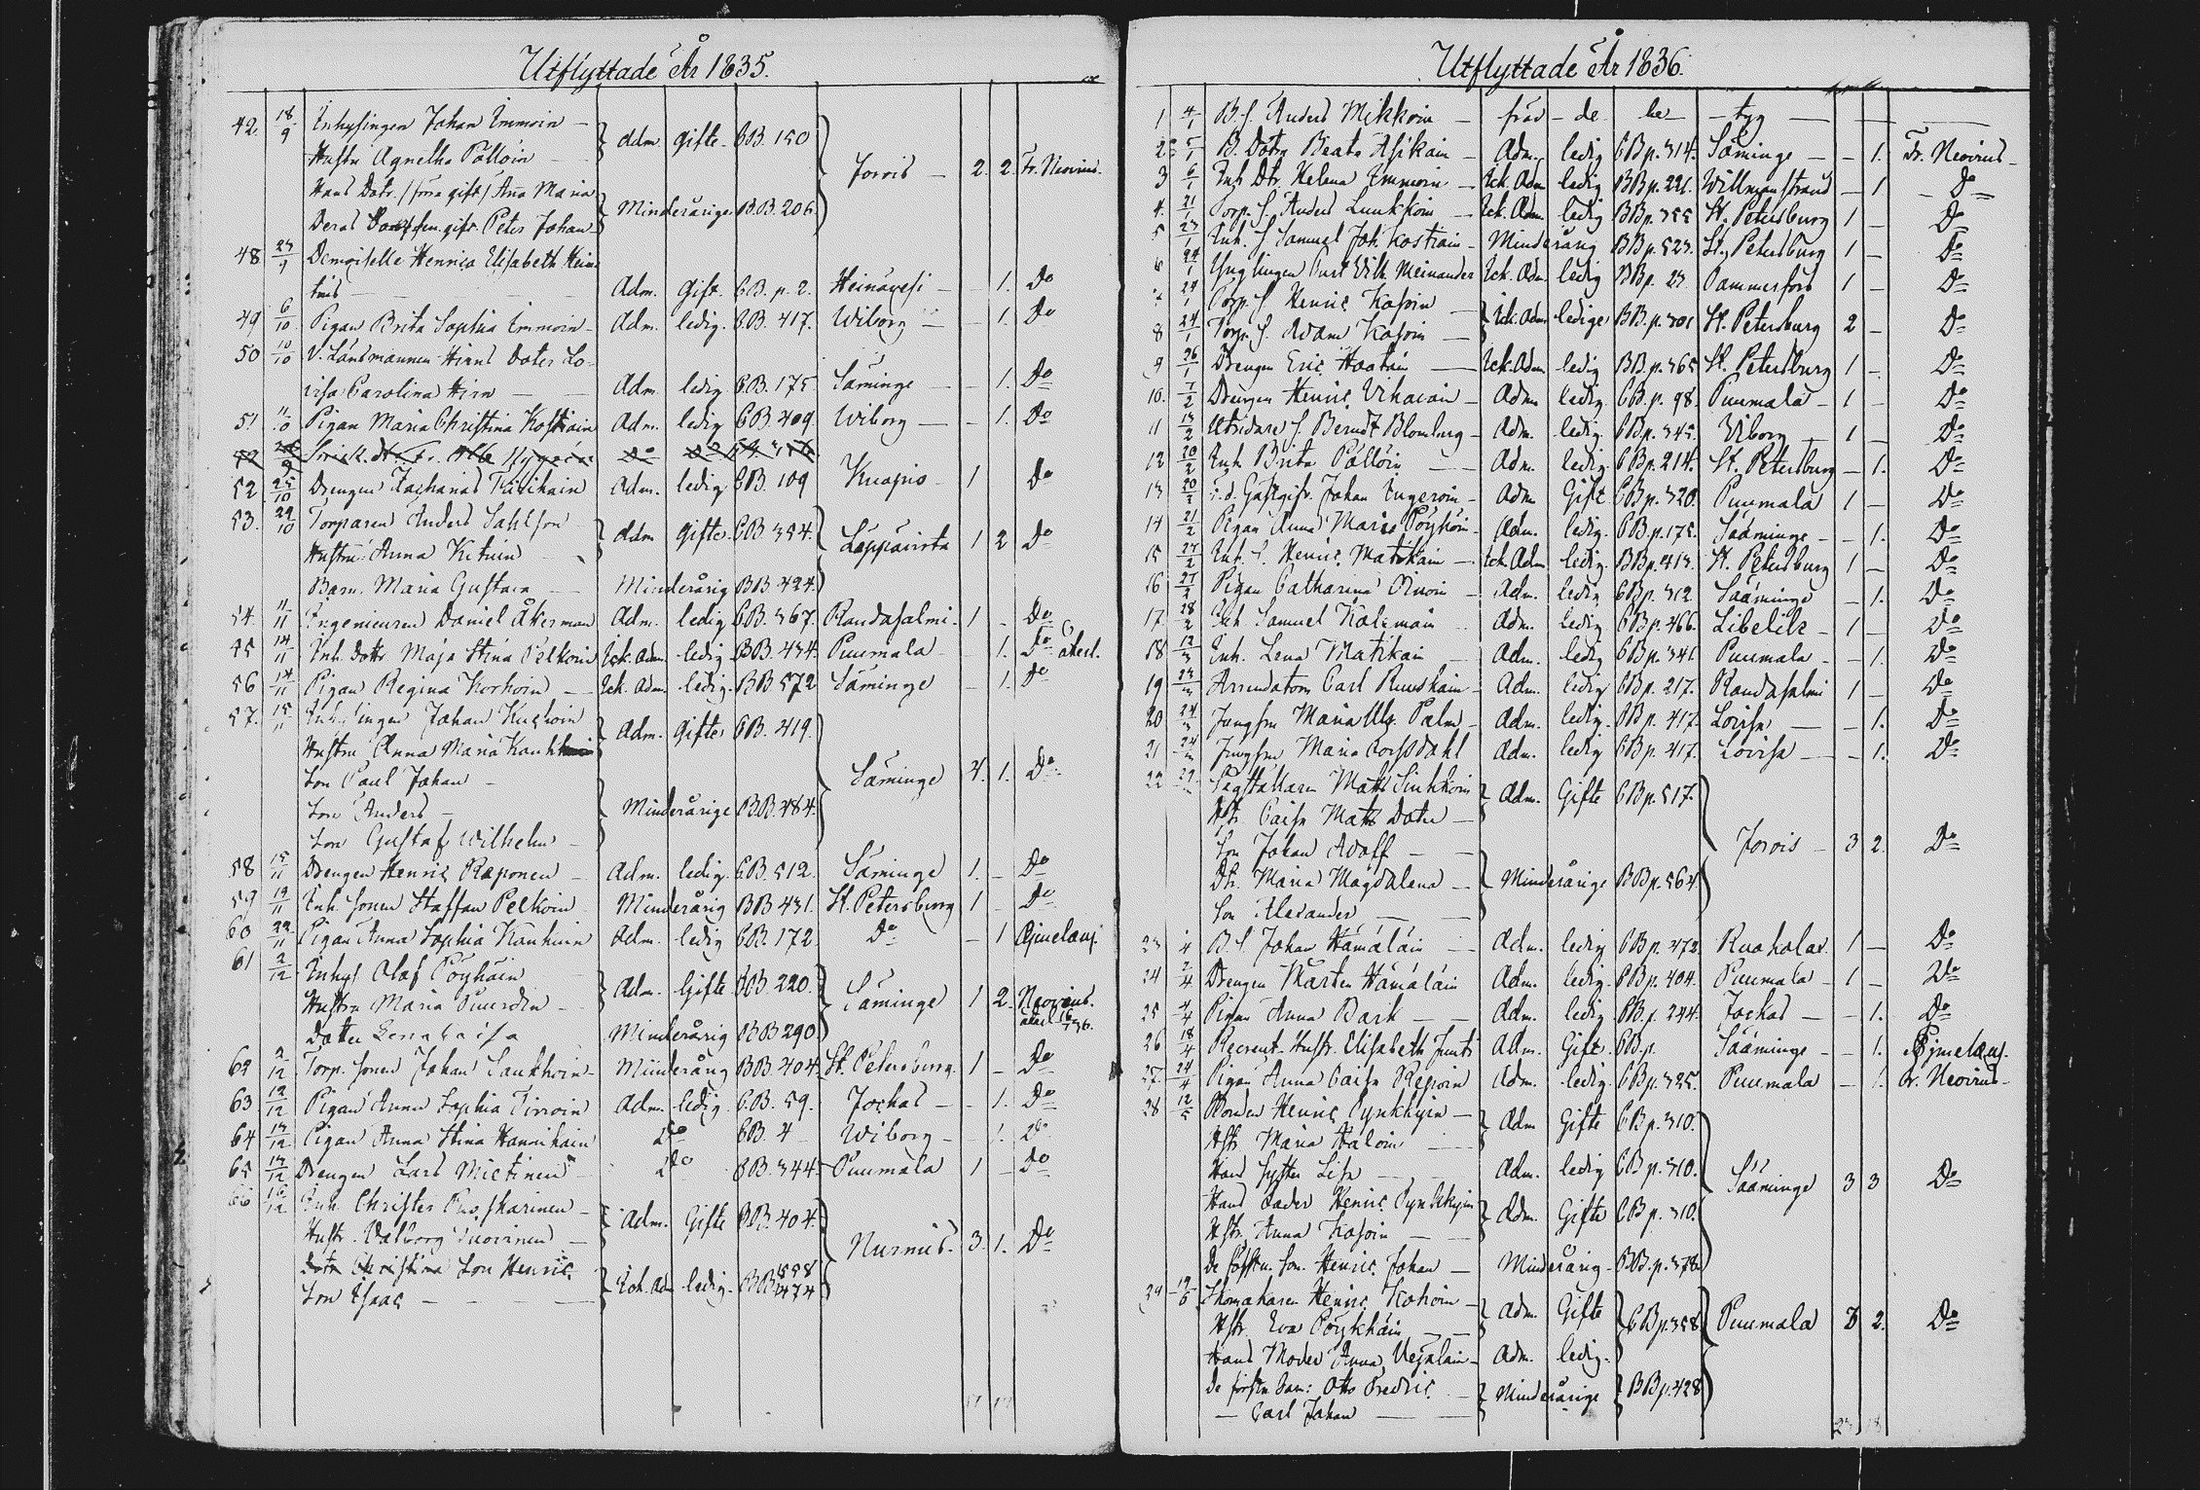 Utflyttade År 1835.
42. 18/9 Inhysingen Johan Immoin — Adm. gifte. CB. 150
Hustru Agnetha Pöllöin — Jorois — 2. 2. Fr. Neovius.
Hans Dotr. (förra gift) Anna Maria
Minderårige B.B. 206.
gift. Peter Johan
48 23/9 Demoiselle Henrica Elisabeth Hein-
— Adm. gift. CB. p. 2. Heinävesi — 1. Do
49 6/10 Pigan Brita Sophia Immoin — Adm. ledig. CB. 417. Wiborg — 1. Do
50 10/10 V. Länsmannen Hirns Dotter Lo-
visa Carolina Hirn — Adm. ledig CB. 175 Säminge — 1. Do
51 11/10 Pigan Maria Christina Kostiain Adm. ledig CB. 409. Wiborg — 1. Do
52 25/10 Drengen Zacharias Adm. ledig CB. 109 Kuopio 1 Do
53. 29/10 Torparen Anders Sahlson Adm gifte. CB 354. Lappvirta 1 2 Do
Hustru Anna
Barn. Maria Gustava — Minderårig BB. 424.
54. 11/11 Ingenieuren Daniel Åkerman Adm. ledig CB. 367. Randasalmi. 1 - Do
55 14/11 Inh. dottr Maja Stina Pelkoin Ick. Adm. ledig BB 434. Puumala 1. Do
56 14/11 Pigan Regina Korhoin — Ick. Adm. ledig. BB 572 Säminge — 1. Do
57. 15/11 Inhysingen Johan Adm. gifte CB. 419.
Hustru Anna Maria
Son Paul Johan — Säminge 4. 1. Do
Son Anders — Minderårige BB. 484.
Son Gustaf Wilhelm —
58 15/11 Drengen Henric Raponen — Adm. ledig. CB. 512. Säminge 1. - Do
59 19/11 Inh. sonen Staffan Pelkoin Minderårig BB 431. St. Petersburg 1 - Do
60 22/11 Pigan Anna Sophia Adm. ledig CB. 172 Do — 1
61 2/12 Inhys Olof Pöyhöin Adm. Gifte CB 220. Säminge 1 2. Neovius.
Hustru Maria
Dotter Lena Caisa Minderårig BB 290
62 2/12 Torp. sonen Johan Minderårig BB 404. St. Petersburg 1 - Do
63 12/12 Pigan Anna Sophia Tirroin Adm. ledig CB. 59. Jockas — 1. Do
64 13/12 Pigan Anna Stina Hannikain Do CB. 4 Wiborg — 1. Do
65 13/12 Drengen Lars Mietinen Do CB 344. Puumala 1 - Do
66 16/12 Inh Christer — Adm. Gifte CB. 404.
Hustr. Valborg — Nurmis. 3. 1. Do
Christina Son Henric
Son Isaac — Ick. Adm ledig. BB 474
Utflyttade År 1836.
1 4/1 B. S. Anders Mikkoin — fräd - de be - tyg —
2 5/1 B. Dotr Beata Asikain — Adm. ledig CB p. 314. Säminge — - 1. Fr. Neovius
3 6/1 Inh Dtr Helena Immoin — Ick. Adm ledig BB p. 221. Willmanstrand — 1 Do
4. 21/1 Torp. S. Anders Luukkoin — Ick. Adm. ledig BB p. 355 St. Petersburg 1 - Do
5 23/1 Inh. S Samuel Joh. Kostiain — Minderårig BB p. 523. St. Petersburg 1 - Do
6 24/1 Ynglingen Carl Wilh Meinander Ick. Adm. ledig BB p. 23 Tammerfors 1 - Do
7 24/1 Torp. S. Henric Kosoin Ick. Adm ledige BB. p. 301 St. Petersburg 2 - Do
8 24/1 Torp. S. Adam Kosoin —
9 26/1 Drengen Eric Hoatain — Ick. Adm ledig BB. p. 365 St. Petersburg 1 - Do
10. 7/2 Drengen Henric Vihavain — Adm ledig CB. p. 98. Puumala — 1 - Do
11 13/2 Utridare S. Berndt Blomberg — Adm. ledig. CB p. 345. Viborg — 1 - Do
12 20/2 Inh Brita Pöllöin — Adm. ledig. CB p. 214. St. Petersburg — 1. Do
13 20/2 f. d. Gästgifv. Johan Ingeroin — Adm Gift CB p. 320. Puumala 1 - Do
14 21/2 Pigan Anna Maria Pöyhöin — Adm. ledig. CB p. 175. Sääminge — 1. Do
15 27/2 Inh. S. Henric Matikain — Ick. Adm ledig BB p. 413. St. Petersburg 1 - Do
16 27/2 Pigan Catharina Oinoin — Adm. ledig. CB p. 312. Sääminge — 1. Do
17. 28/2 Inh Samuel Adm. ledig CB p. 466. Libelits — 1 - Do
18 12/3 Inh. Lena Matikain Adm. ledig CB p. 341. Puumala — - 1. Do
19 23/3 Arrendatorn Carl Ruuskain — Adm. ledig CB p. 217. Randasalmi 1 - Do
20 24/3 Jungfru Maria Ulr. Palm — Adm. ledig. CB p. 417. Lovisa — - 1. Do
21 24/3 Jungfru Maria Adm. ledig CB p. 417. Lovisa — - 1. Do
22 29/3 Matts Adm. Gifte CB p. 517.
Hstr Caisa Matts Dotter —
Son Johan Adolf — Jorois — 3 2. Do
Dtr. Maria Magdalena — Minderårige BB p. 564.
Son Alexander —
23 4 B. S. Johan Hämäläin — Adm. ledig CB p. 472. Ruokolax 1 - Do
24 2/4 Drengen Mårten Hämäläin Adm. ledig. CB p. 404. Puumala — 1 - Do
25 4/4 Pigan Anna Bark — Adm. ledig CB p. 244. Jockas — - 1. Do
26 18/4 Recreut. Hustr. Elisabeth Adm. Gift. CB p. Sääminge — - 1.
27 24/4 Pigan Anna Caisa Repoin Adm. ledig. CB p. 325. Puumala — 1. Fr. Neovius
28 12/5 Bonden Henric Pynkhyin — Adm Gifte CB p. 310.
Hstr. Maria Haloin —
Hans Syster Lisa — Adm. ledig CB p. 310. Sääminge 3 3 Do
Hans Fader Henric Adm. Gifte CB p. 310.
Hstr. Anna Kosoin —
Son. Henric Johan — Minderårig. BB. p. 378
29 19/5 Skomakaren Henric Kohoin — Adm. Gifte CB p. 358 Puumala 3 2. Do
Hstr. Eva Pöykhäin —
Hans Moder Anna — Adm. ledig.
Otto Fredric — Minderårige BB p. 428
— Carl Johan —